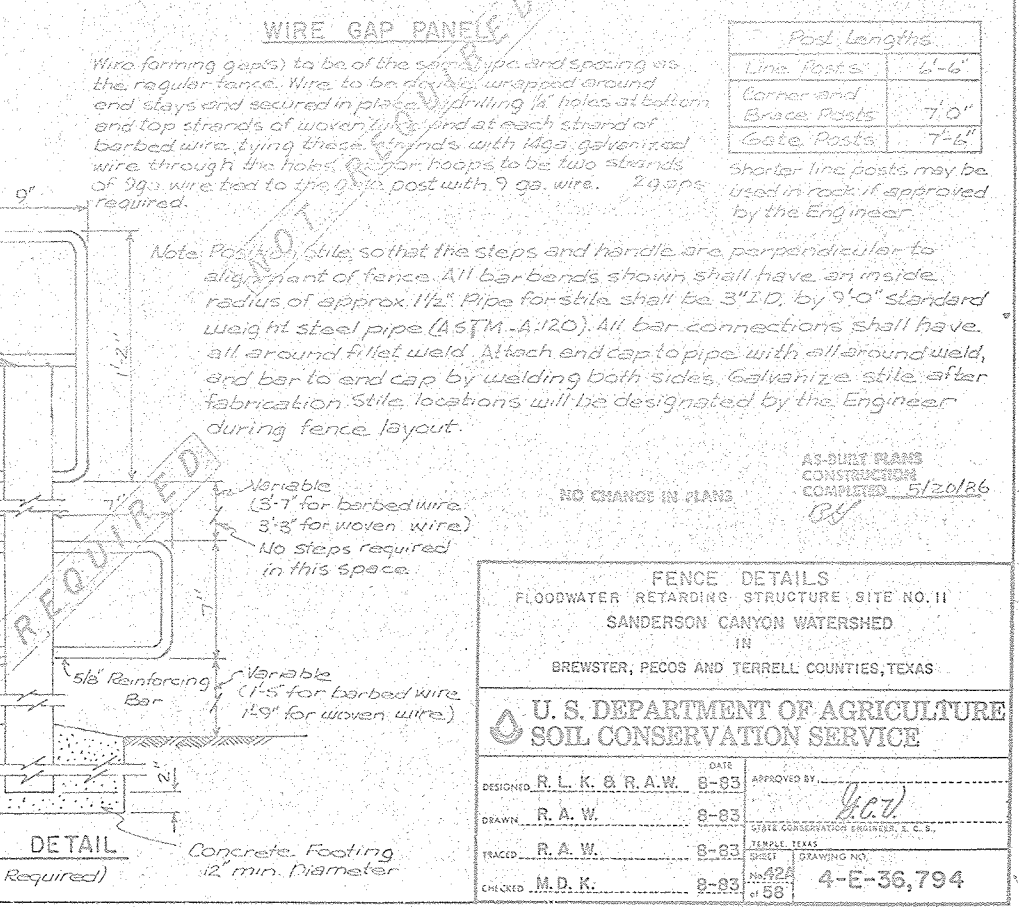 WIRE GAP PANEL
Wire forming gap(s) to be of the same type and spacing as
the regular fence. Wire to be double wrapped around
end stays and secured in place by drilling 1/4" holes at bottom
and top strands of woven wire and at each strand of
barbed wire, tying these strands with 14ga. galvanized
wire through the holes. hoops to be two strands
of 9ga. wire tied to the gate post with 9 ga. wire. 2 gaps
required.
NOT REQUIRED
Post Lengths
Line Posts 6'-6"
Corner and
Brace Posts 7'0"
Gate Posts 7'-6"
Shorter line posts may be
used in rock if approved
by the Engineer
Note: Position stile so that the steps and handle are perpendicular to
alignment of fence. All bar bends shown shall have an inside
radius of approx. 1 1/2". Pipe for stile shall be 3" I.D. by 9'-0" standard
weight steel pipe (ASTM-A-120). All bar connections shall have
all around fillet weld. Attach end cap to pipe with all around weld,
and bar to end cap by welding both sides. Galvanize stile after
fabrication. Stile locations will be designated by the Engineer
during fence layout.
9"
1'-2"
7"
Variable
(3'-7" for barbed wire
3'-3" for woven wire)
No steps required
in this space
7"
REQUIRED
5/8" Reinforcing
Bar
Variable
(1'-5" for barbed wire
1'-9" for woven wire)
2"
DETAIL
Required)
Concrete Footing
12" min. Diameter
NO CHANGE IN PLANS
AS-BUILT PLANS
CONSTRUCTION
COMPLETED 5/20/86
BY
FENCE DETAILS
FLOODWATER RETARDING STRUCTURE SITE NO. 11
SANDERSON CANYON WATERSHED
IN
BREWSTER, PECOS AND TERRELL COUNTIES, TEXAS
U. S. DEPARTMENT OF AGRICULTURE
SOIL CONSERVATION SERVICE
DATE
DESIGNED R. L. K. & R. A. W. 8-83
DRAWN R. A. W. 8-83
TRACED R. A. W. 8-83
CHECKED M. D. K. 8-83
APPROVED BY
STATE CONSERVATION ENGINEER, S. C. S.,
TEMPLE, TEXAS
SHEET
No. 42A
of 58
DRAWING NO.
4-E-36,794